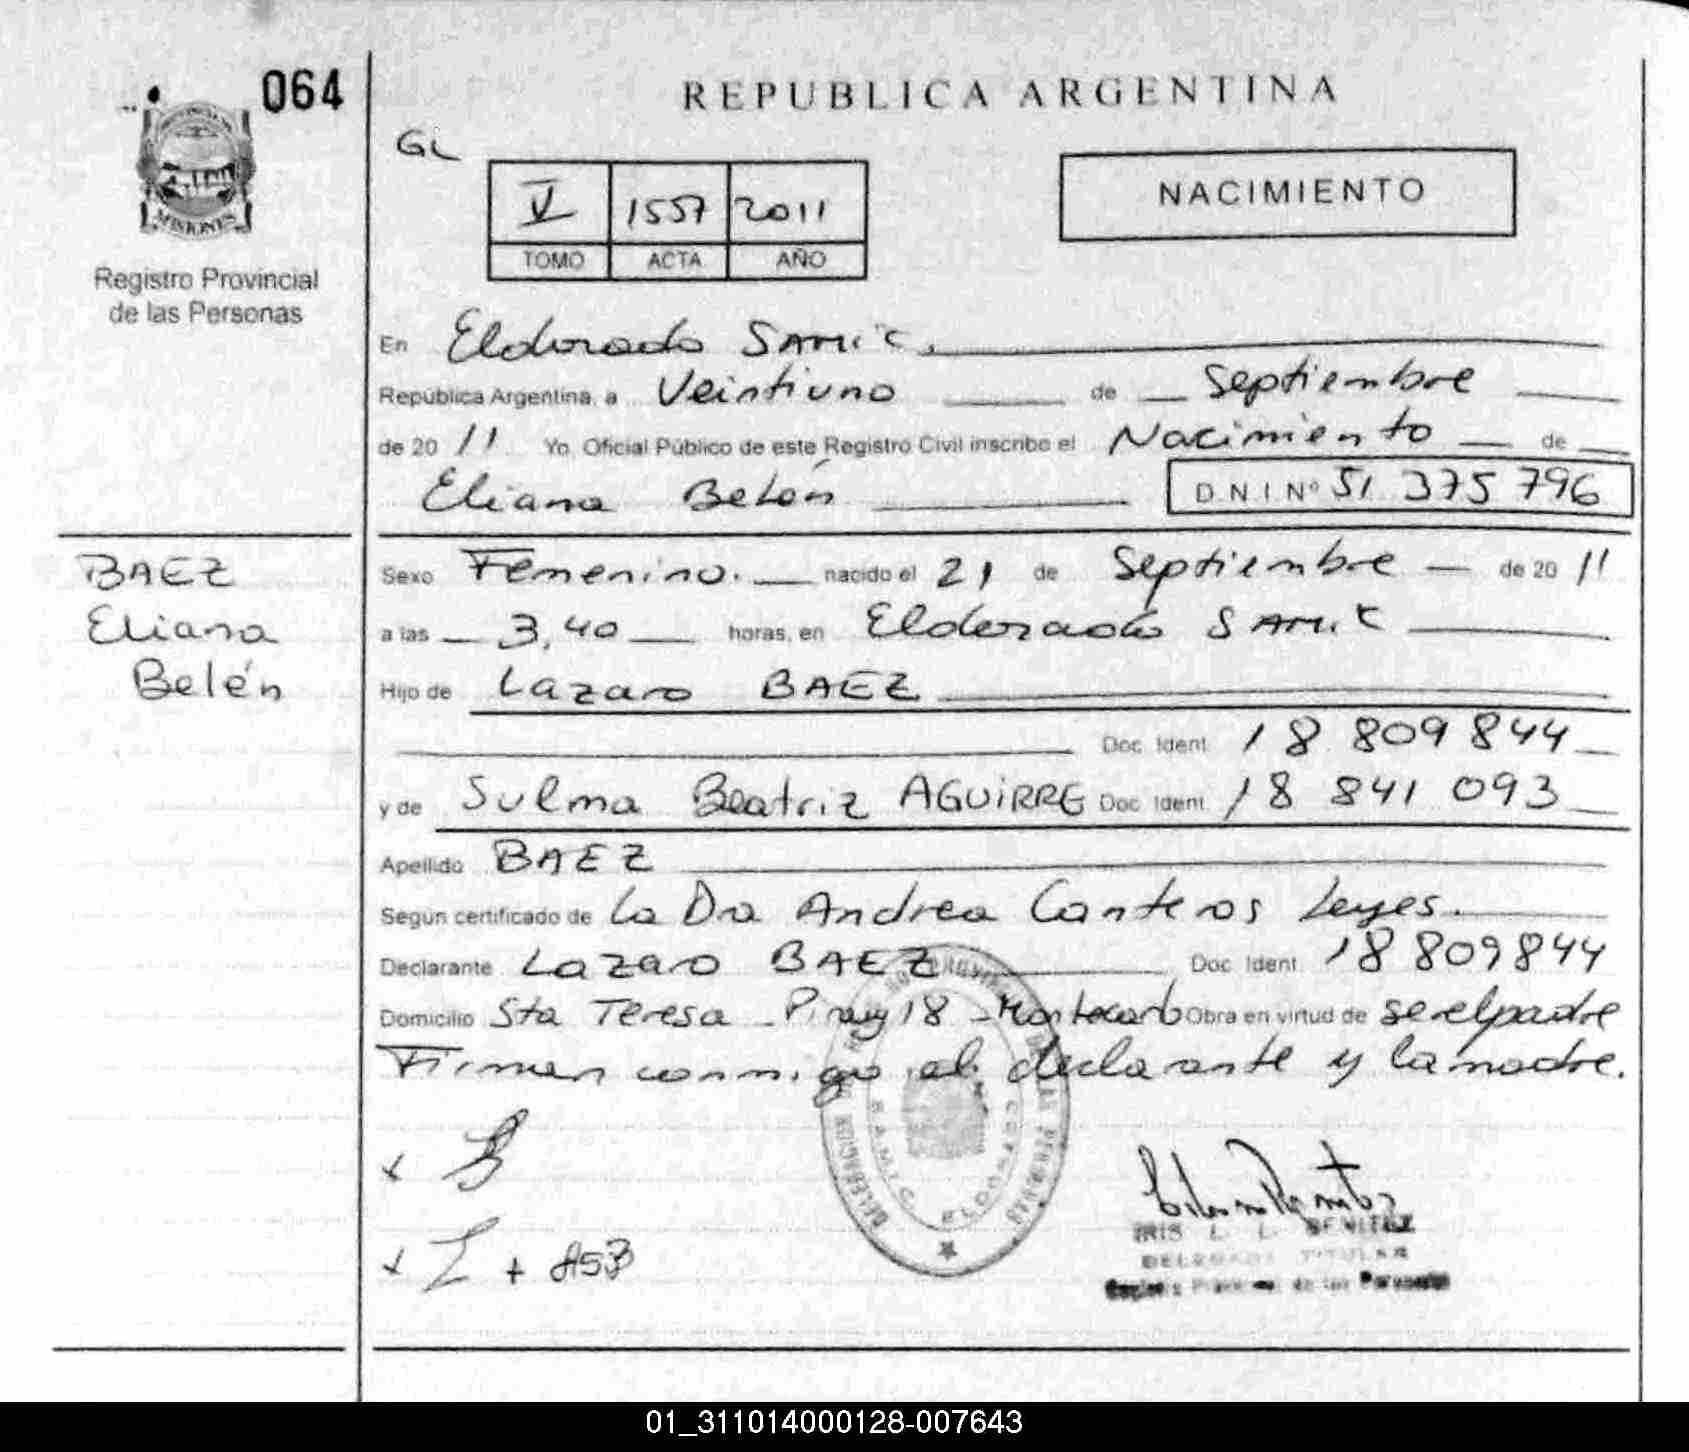 064
MISIONES
Registro Provincial
de las Personas
REPUBLICA ARGENTINA
GL
V 1557 2011
TOMO ACTA AÑO
NACIMIENTO
En Eldorado SAMIC.
República Argentina, a Veintiuno de Septiembre
de 20 11 Yo, Oficial Público de este Registro Civil inscribo el Nacimiento de
Eliana Belén D N I Nº 51 375 796
BAEZ
Eliana
Belén
Sexo Femenino. nacido el 21 de Septiembre de 20 11
a las 3,40 horas, en Eldorado SAMIC
Hijo de Lazaro BAEZ
Doc. Ident. 18 809 844
y de Sulma Beatriz AGUIRRE Doc. Ident. 18 841 093
Apellido BAEZ
Según certificado de La Dra Andrea Canteros Leyes.
Declarante Lazaro BAEZ Doc. Ident. 18 809844
Domicilio Sta Teresa - Piray 18 - Montecarlo Obra en virtud de ser el padre
Firman conmigo el declarante y la madre.
IRIS L. L. BENITEZ
DELEGADA TITULAR
Registro Provincial de las Personas
01_311014000128-007643